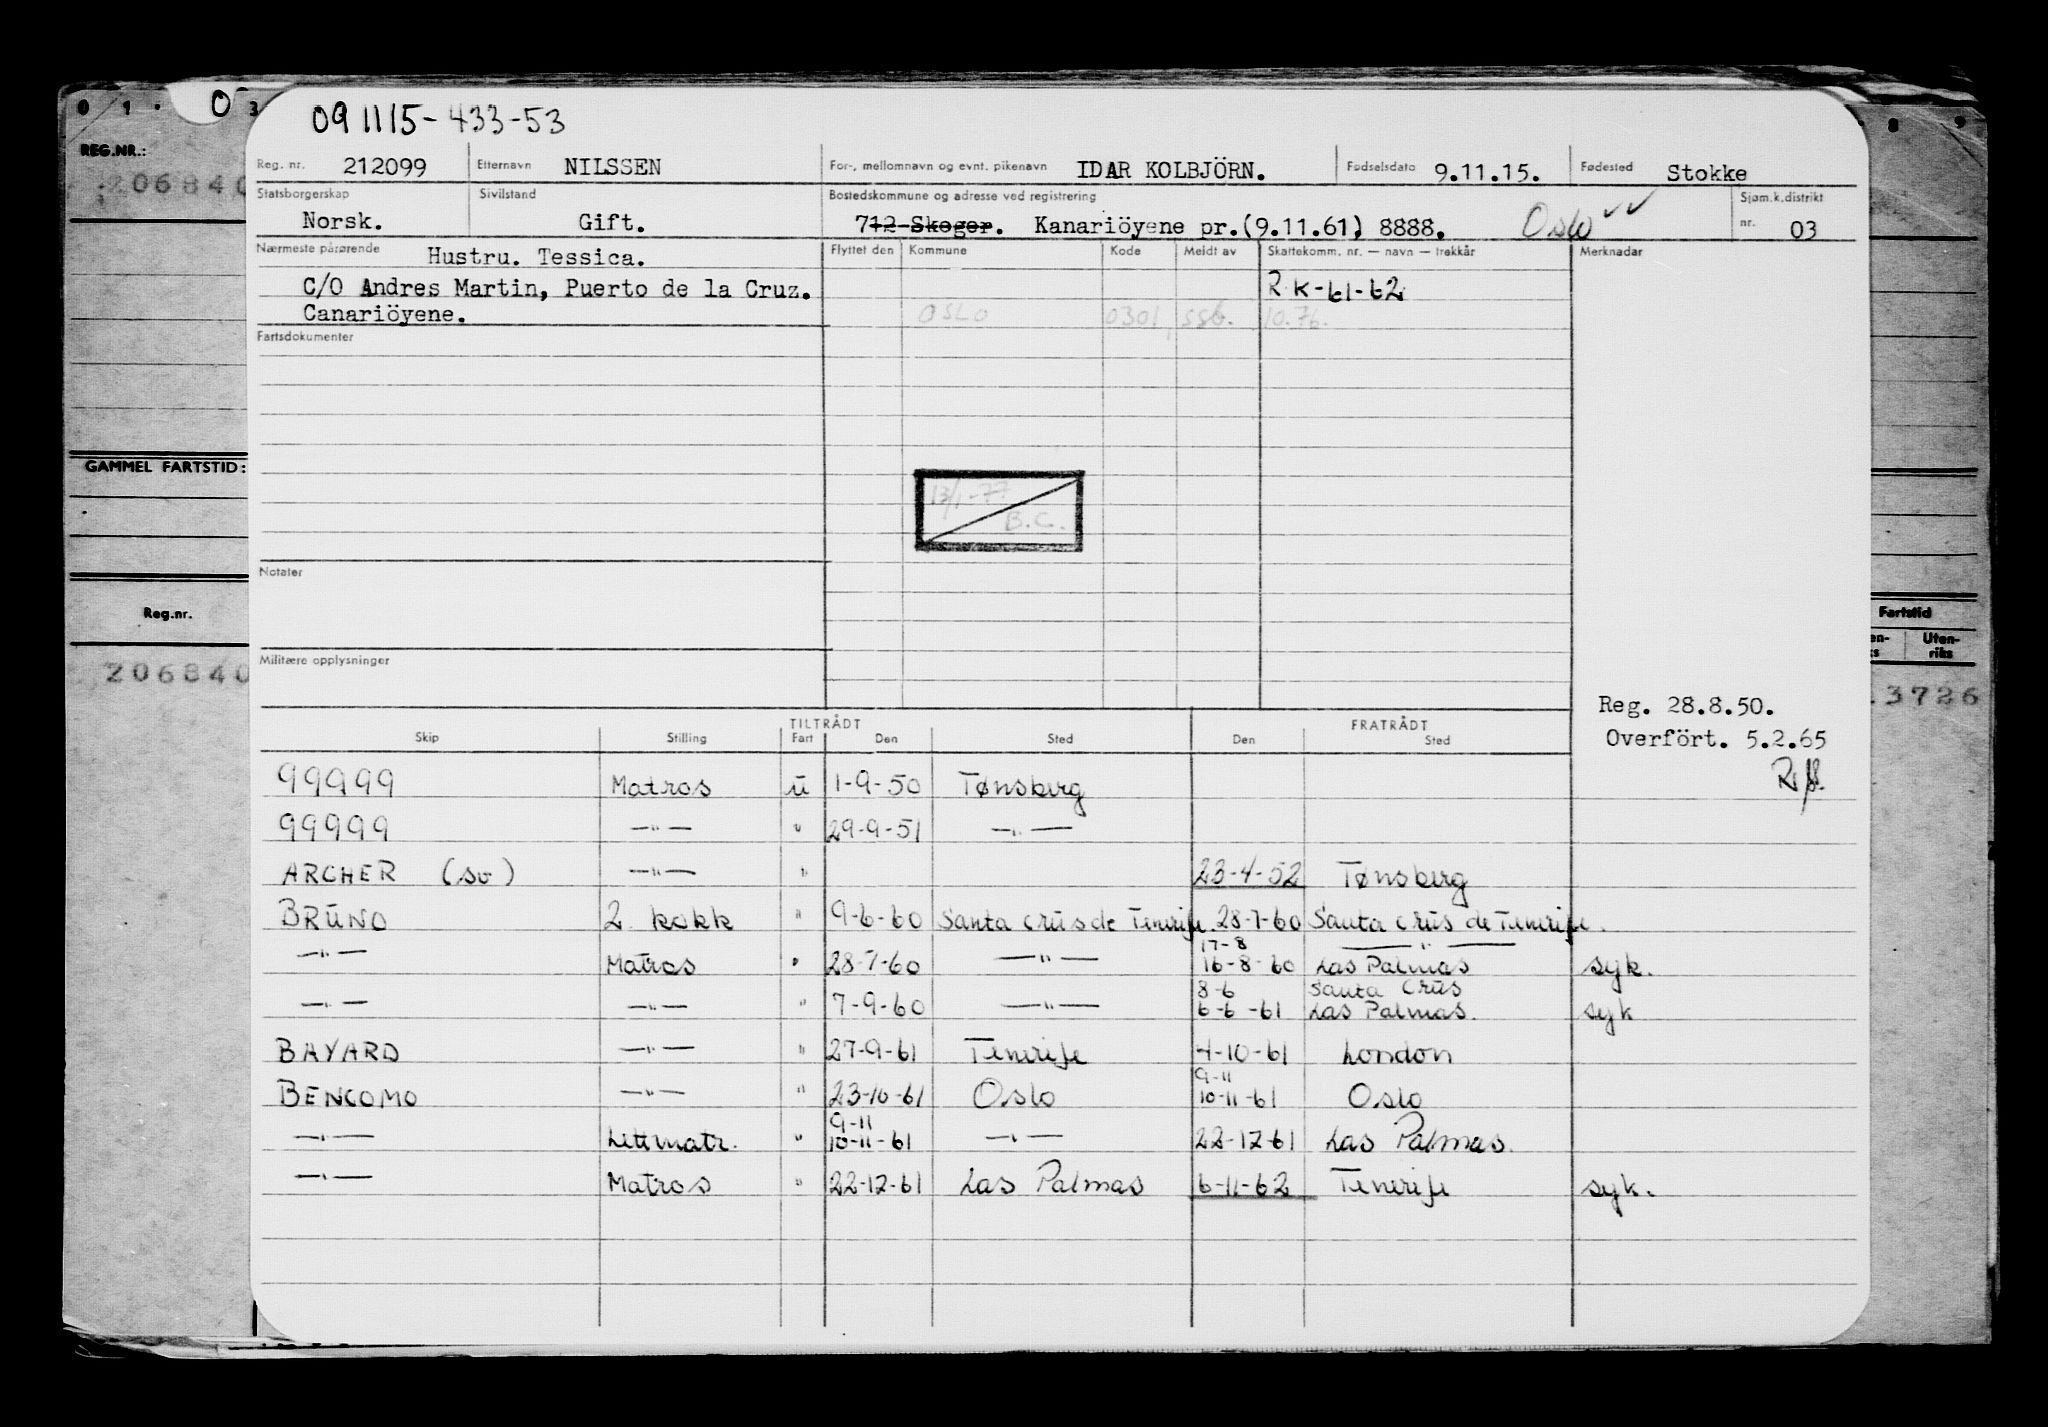 0 1 . 0 3
8 9
REG.NR.:
206840
GAMMEL FARTSTID:
Reg.nr.
206840
Fartstid
en-
Uten-
s
riks
.3726
091115-433-53
Reg. nr. 212099 Etternavn NILSSEN For-, mellomnavn og evnt. pikenavn IDAR KOLBJÖRN. Fødselsdato 9.11.15. Fødested Stokke
Statsborgerskap Sivilstand Bostedskommune og adresse ved registrering Sjøm.k.distrikt
Norsk. Gift. 712-Skoger. Kanariöyene pr.(9.11.61) 8888. Oslo nr. 03
Nærmeste pårørende Hustru. Tessica. Flyttet den Kommune Kode Meldt av Skattekomm. nr. — navn — trekkår Merknader
C/O Andres Martin, Puerto de la Cruz. RK-61-62
Canariöyene. OSLO 0301 ssb. 10.76.
Fartsdokumenter
13/1-77
B.C.
Notater
Militære opplysninger
Reg. 28.8.50.
Overfört. 5.2.65
TILTRÅDT FRATRÅDT
Skip Stilling Fart Den Sted Den Sted
99999 Matros u 1-9-50 Tønsberg
99999 —"— " 29-9-51 —"—
ARCHER (sv) —"— " 23-4-52 Tønsberg
BRUNO 2 kokk " 9-6-60 Santa Crus de Tenerife. 28-7-60 Santa Crus de Tenerife.
17-8 —"—
—"— Matros " 28-7-60 —"— 16-8-60 Las Palmas syk.
8-6 Santa Crus
—"— —"— " 7-9-60 —"— 6-6-61 Las Palmas. syk
BAYARD —"— " 27-9-61 Tenerife 4-10-61 London
9-11
BENCOMO —"— " 23-10-61 Oslo 10-11-61 Oslo
9-11
—"— Lettmatr. " 10-11-61 —"— 22-12-61 Las Palmas.
—"— Matros " 22-12-61 Las Palmas 6-11-62 Tenerife syk.